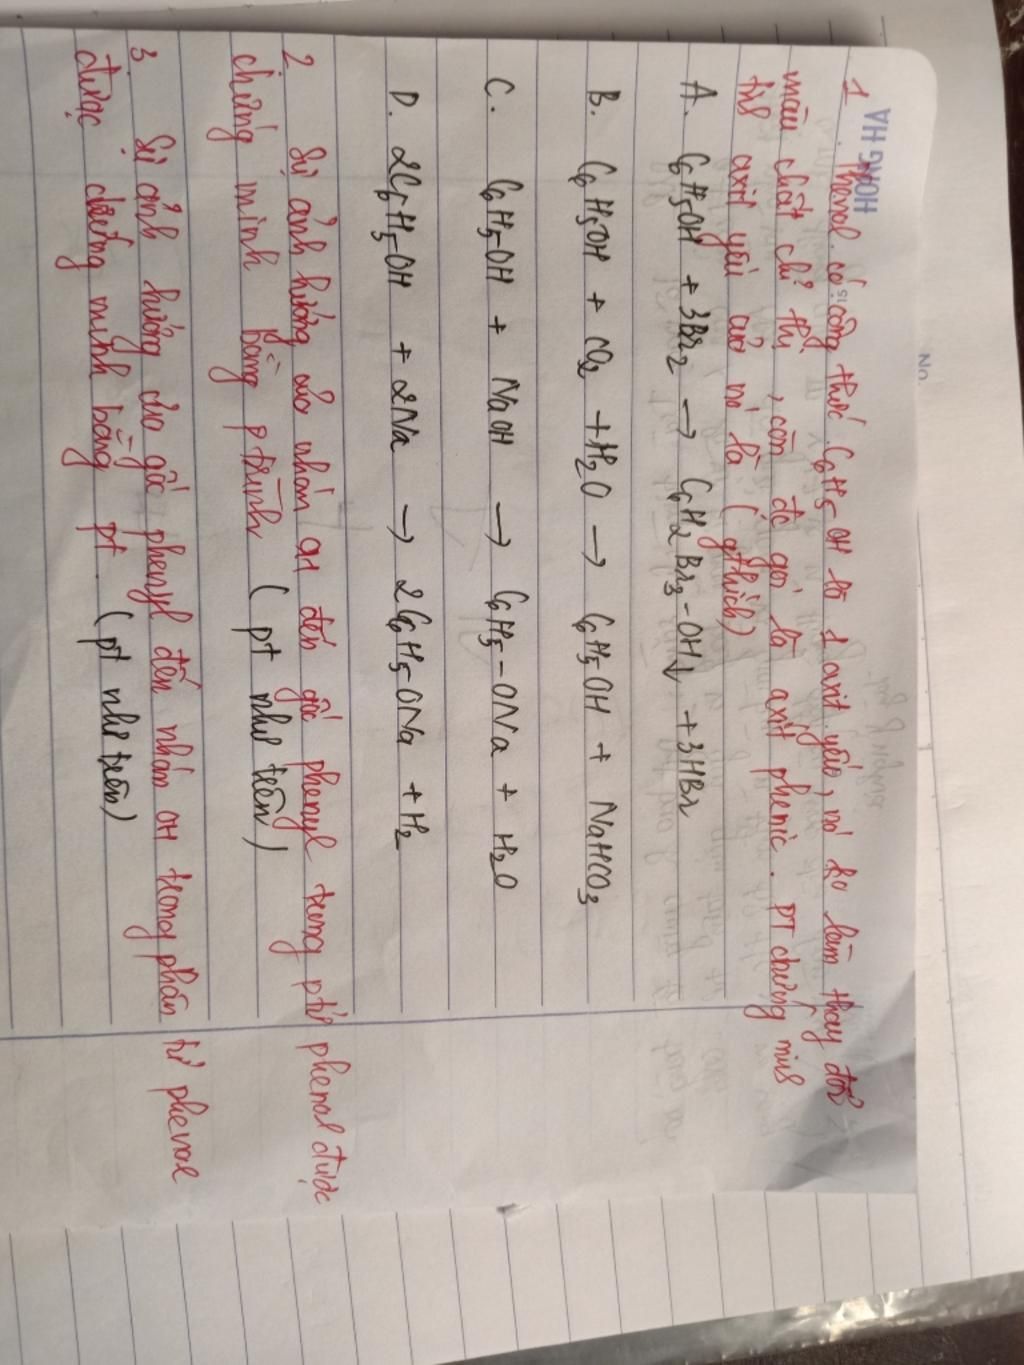 HONG HA
No.
1. Phenol có công thức C6H5OH là 1 axit yếu, nó ko làm thay đổi
màu chất chỉ thị, còn đc gọi là axit phenic. PT chứng mih
tíh axit yếu của nó là (gthích)
A. C6H5OH + 3Br2 → C6H2Br3-OH↓ + 3HBr
B. C6H5OH + CO2 + H2O → C6H5OH + NaHCO3
C. C6H5-OH + NaOH → C6H5-ONa + H2O
D. 2C6H5-OH + 2Na → 2C6H5-ONa + H2
2 Sự ảnh hưởng của nhóm OH đến gốc phenyl trong ptử phenol được
chứng minh bằng ptrình (pt như trên)
3. Sự ảnh hưởng của gốc phenyl đến nhóm OH trong phân tử phenol
được chứng minh bằng pt (pt như trên)